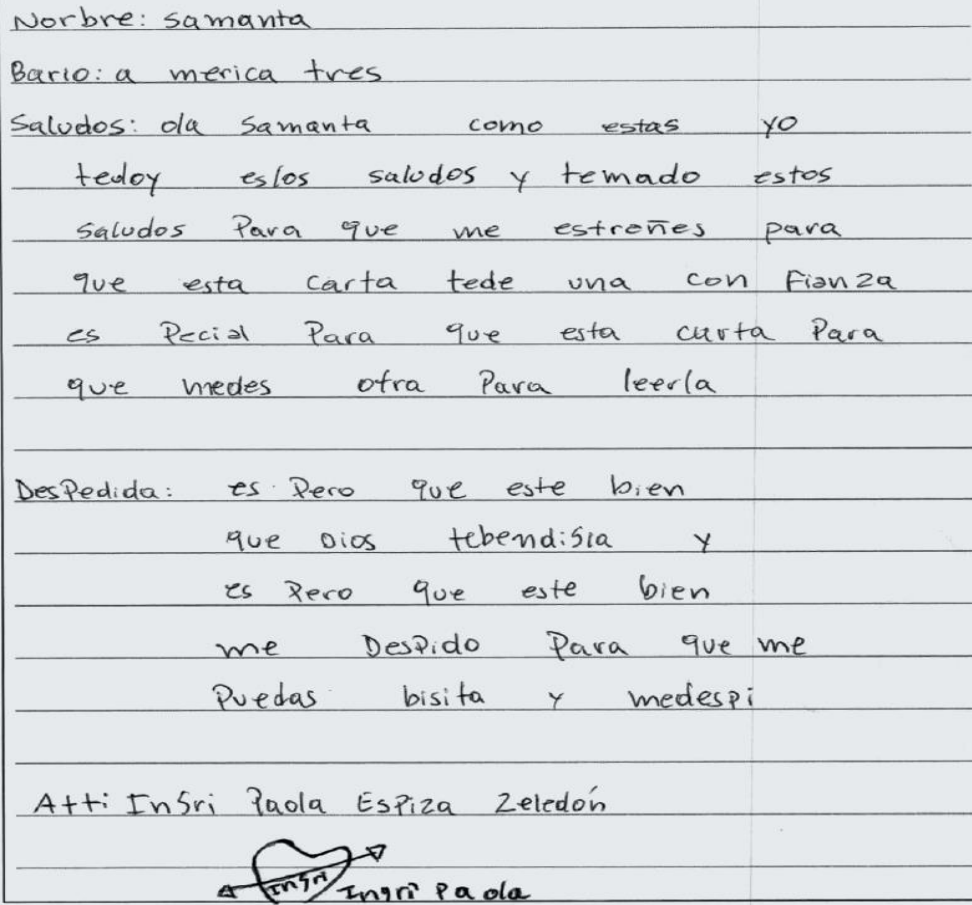 Norbre: samanta
Bario: a merica tres
Saludos: ola Samanta como estas yo
tedoy eslos saludos y temado estos
saludos Para que me estreñes para
que esta carta tede una con Fianza
es Pecial Para que esta carta Para
que medes otra Para leerla
DesPedida: es Pero que este bien
que Dios tebendisia y
es Pero que este bien
me DesPido Para que me
Puedas bisita y medespi
Att: InGri Paola EsPiza Zeledón
InGri
Ingri Paola